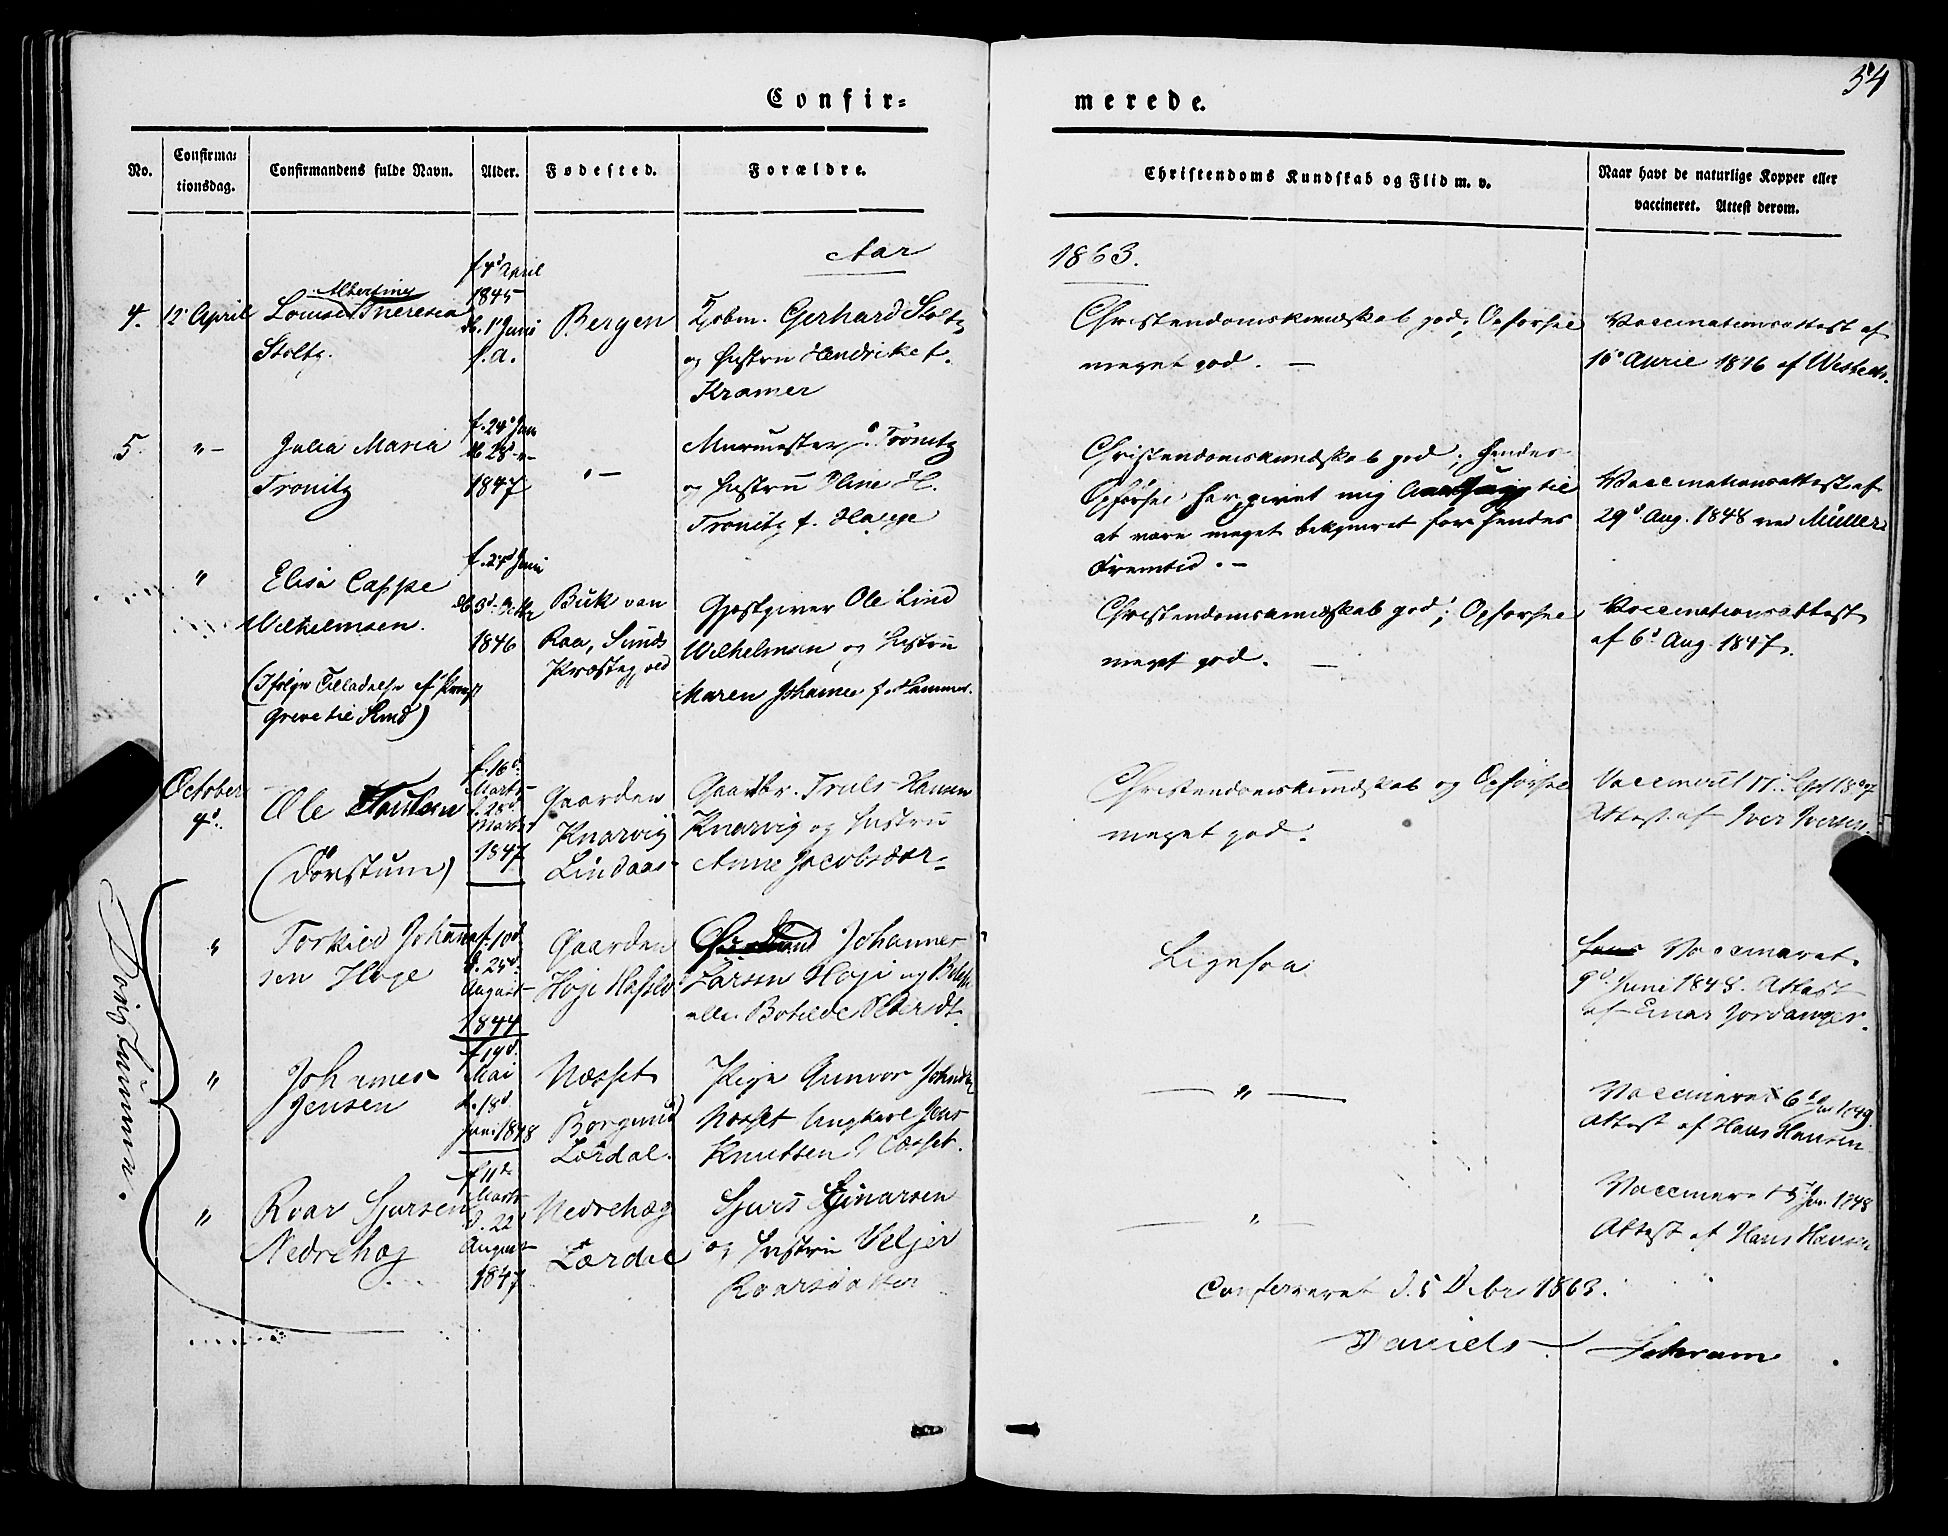 54
Confir= merede.
No.
Confirma=
tionsdag.
Confirmandens fulde Navn.
Alder.
Fødested.
Forældre.
Christendoms Kundskab og Flid m. v.
Naar havt de naturlige Kopper eller
vaccineret. Attest derom.
Aar 1863.
4. 12 April
Albertine
Louise Theresia
Stoltz.
f. 4d April
1845
d. 1 Juni
s. a.
Bergen
Gerhard Stoltz
og Hustru Hendrike f.
Kramer
Christendomskundskab god; Opførsel
meget god. —
Vaccinationsattest af
April 1846 af
5. "—
Julia Maria
Tronitz
f. 24d
1847
"—
Muurmester Tronitz
og Hustru Oline H.
Tronitz f. Hauge
Christendomskundskab god; hendes
Opførsel har givet mig til
at være meget bekymret for hendes
Fremtid. —
Vaccinationsattest af
29d Aug. 1848 ved Müller
"
Elisa Cappe
Wilhelmsen.
(Ifølge Tilladelse af
Greve til Sund)
f. 24d Juni
1846
Buk van
Raa, Sunds
Præstegjeld
Gjæstgiver Ole Lind
Wilhelmsen og Hustru
Maren Johanne f. Hammer.
Christendomskundskab god; Opførsel
meget god. —
Vaccinationsattest
af 6d Aug. 1847.
October
4d.
Ole
(Dövstum)
f. 16d
Marts
d. 28d
Marts
1847
Gaarden
Knarvig
Lindaas
Gaardbr. Truls Hansen
Knarvig og Hustru
Anne Jacobsdtr.
Christendomskundskab og Opførsel
meget god.
Vaccineret 17
Attest af Iver Iversen.
Døvstumme.
"
Torkild Johanne
sen Høge
f. 10d
d. 25d
August
1844
Gaarden
Høje Hafslo
Johannes
Larsen Høje og
eller Botilde
Ligesaa
Vaccineret
9d Juni 1848. Attest
af Einar Jordanger.
"
Johannes
Jensen
f. 19d
Mai
d. 18d
Juni 1848
Næsset
Borgund
Lærdal.
Pige Gunvor
Næsset Ungkarl Jens
Knutsen Næsset.
— " —
Vaccineret 6d Jan 1849.
Attest af Hans Hansen
"
Roar Sjursen
Nedrehæg
f. 11te
Marts
d. 22
August
1847
Nedrehæg
Lærdal
Sjurs Einarsen
og Hustru
Roarsdatter
— " —
Vaccineret 5 Jan. 1848
Attest af Hans Hansen
Confereret d. 5 Debr 1863.
Daniels. Schram